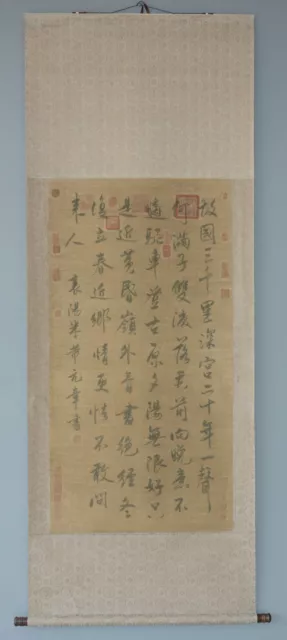 故國三千里深宮二十年一聲
何滿子雙淚落君前向晚意不
適驅車登古原夕陽無限好只
是近黄昏嶺外音書絕經冬
復立春近鄉情更怯不敢問
来人 襄陽米芾元章書